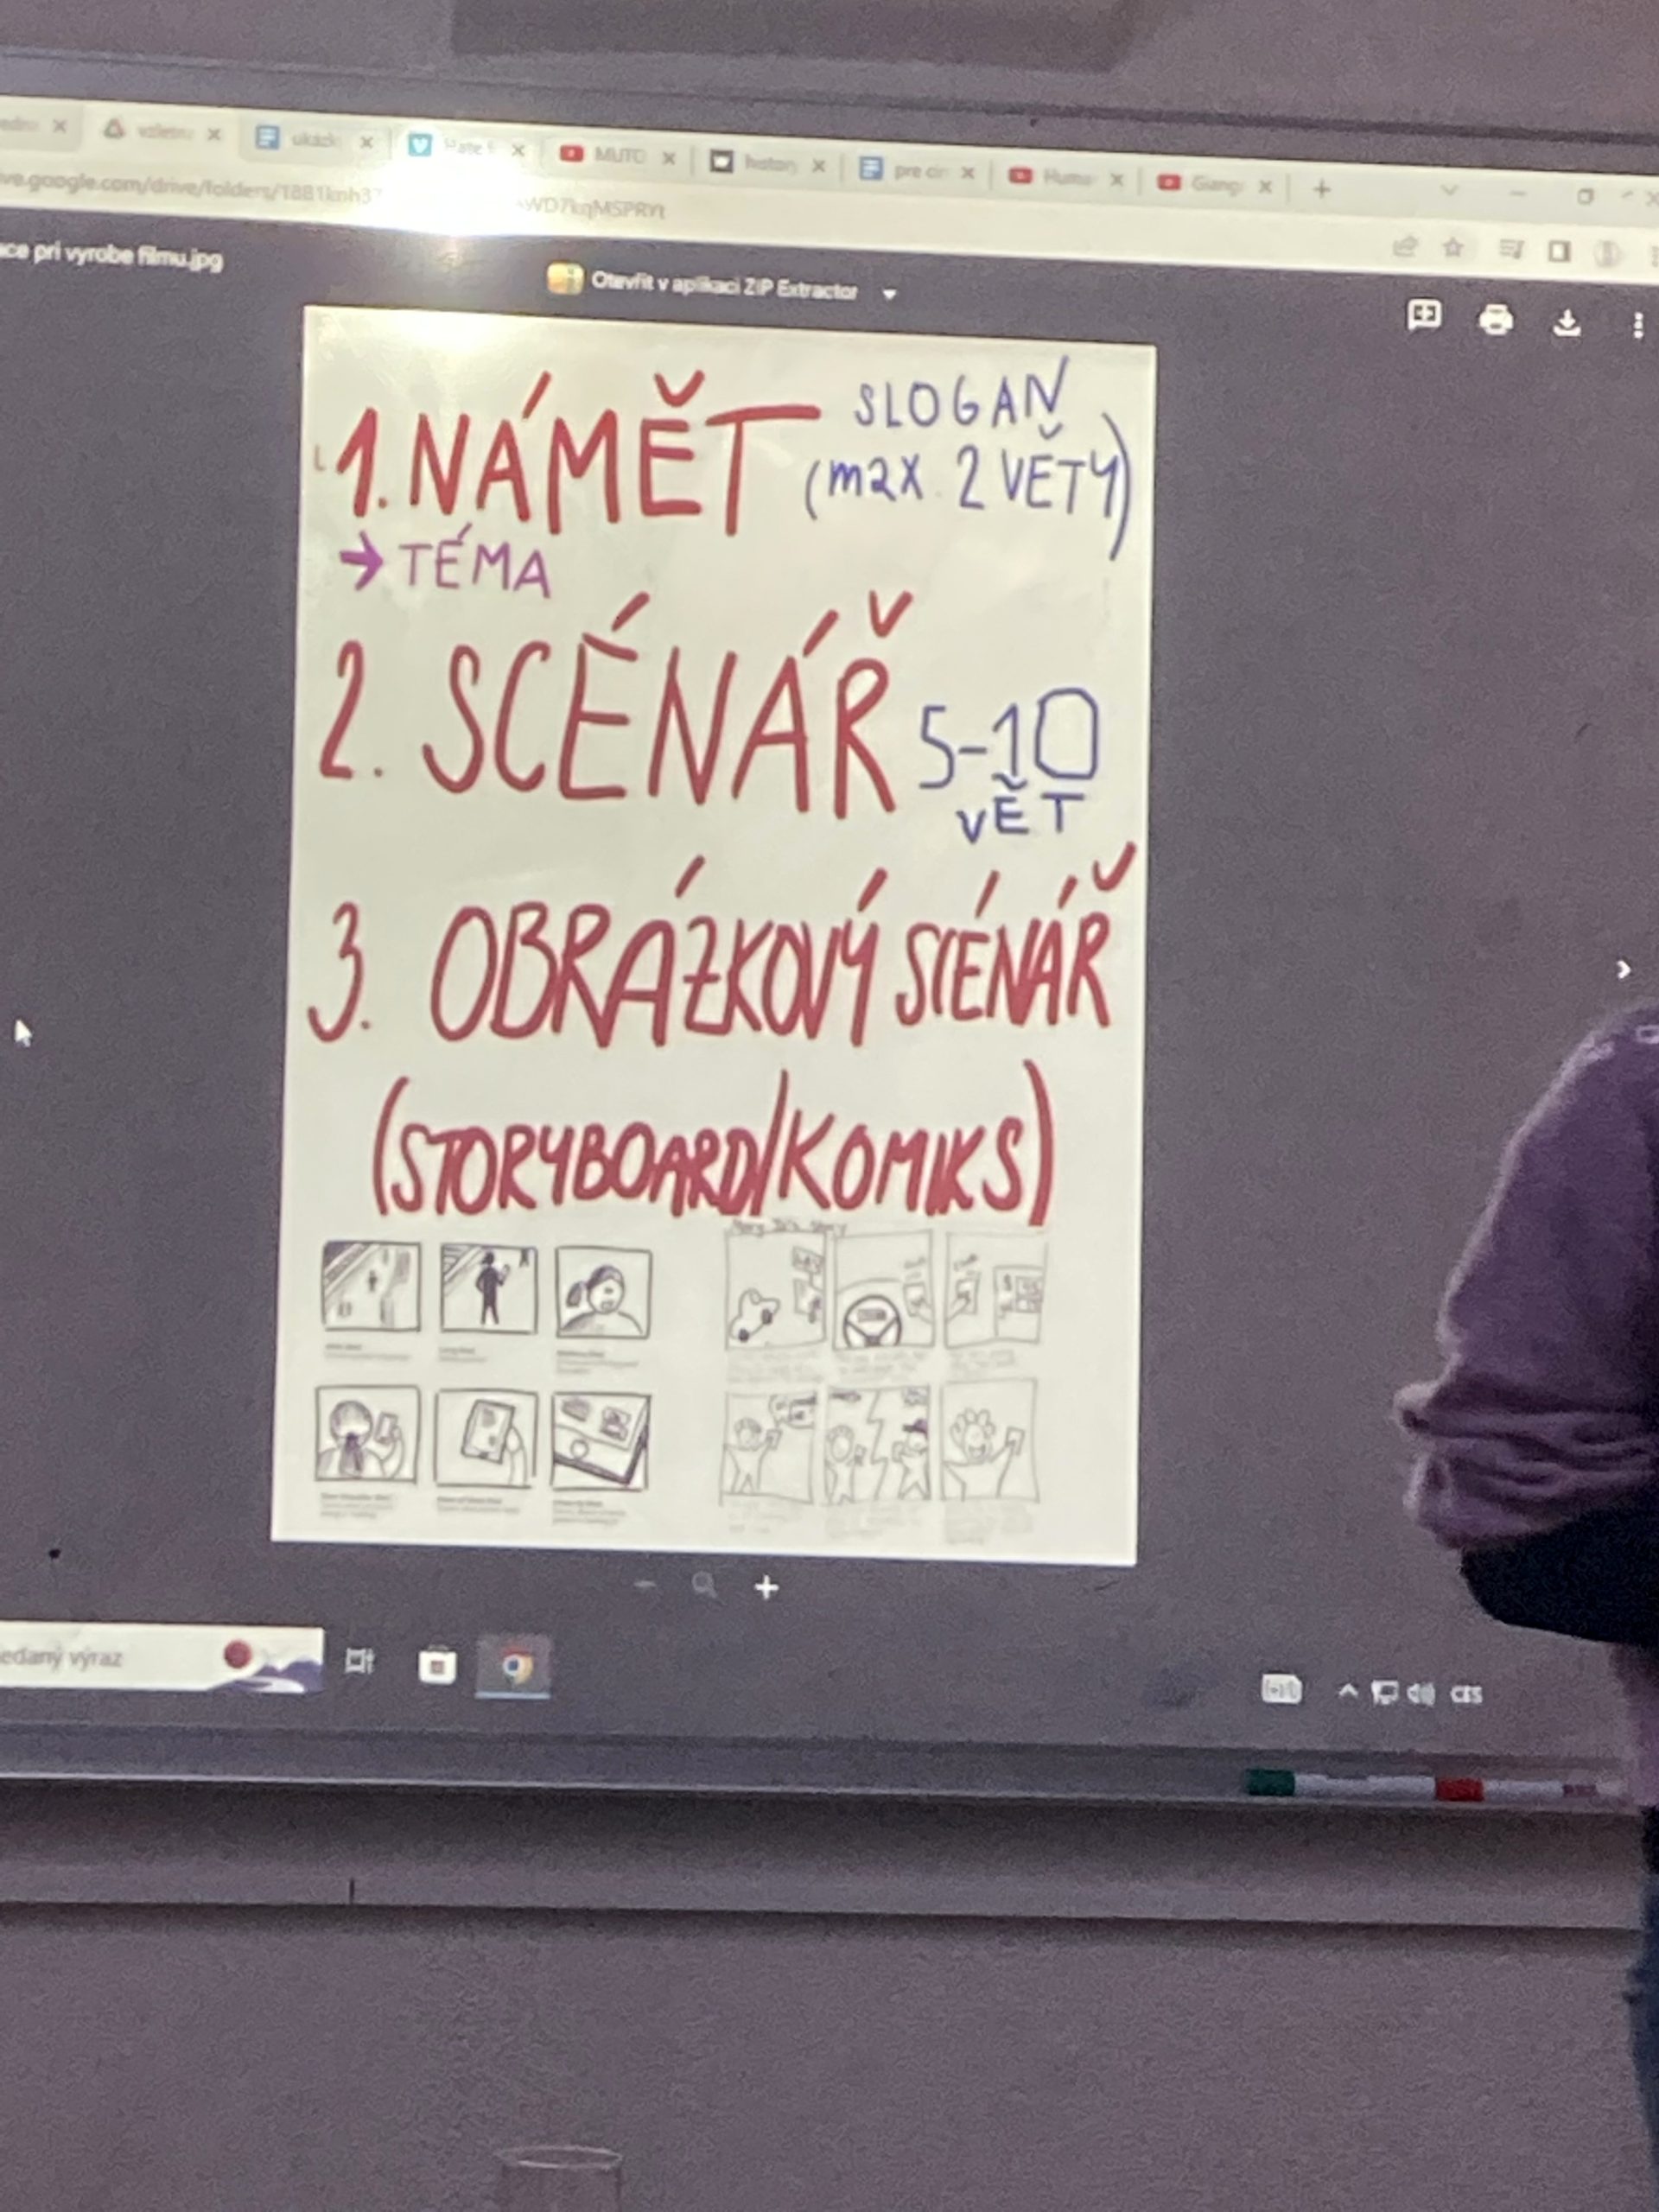 ukazk
MUTO
history
pre cir
Huma
Gang
ve.google.com/drive/folders/18B1knh3
WD7kqMSPRYt
ce pri vyrobe filmu.jpg
Otevřít v aplikaci ZIP Extractor
1. NÁMĚT
SLOGAN
(max. 2 VĚTY)
→ TÉMA
2. SCÉNÁŘ
5-10
VĚT
3. OBRÁZKOVÝ SCÉNÁŘ
(STORYBOARD/KOMIKS)
edaný výraz
CES